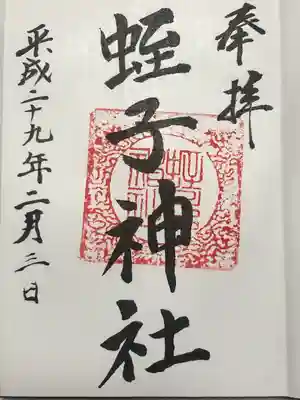 奉拝
蛭子神社
平成二十九年二月三日